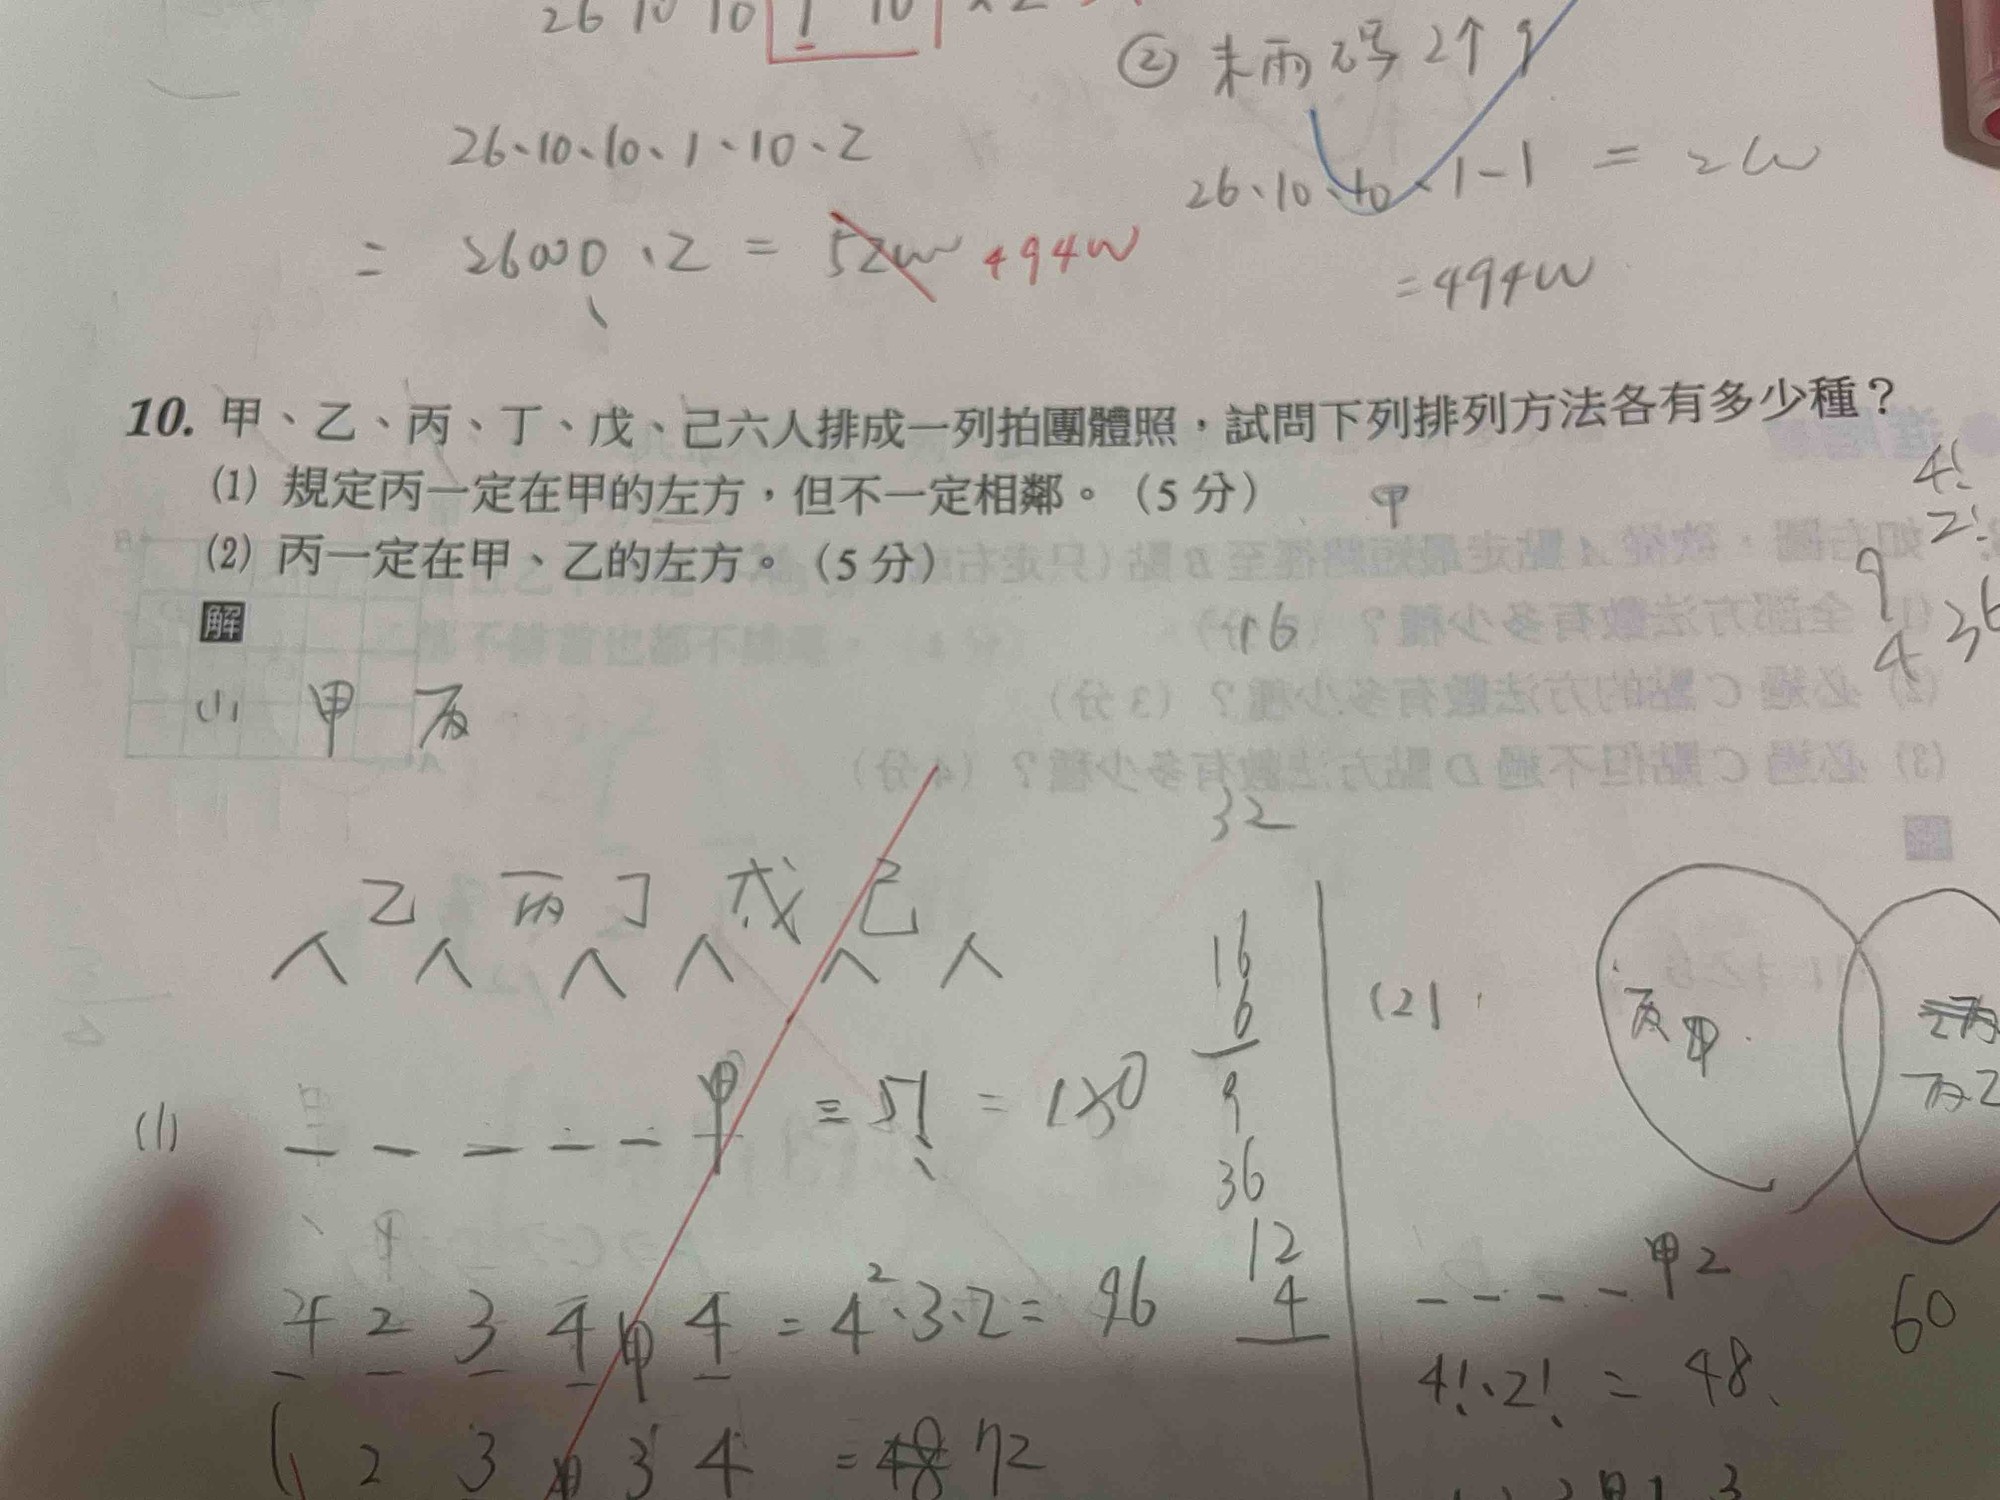 26 10 10 1 10 × 2
② 末兩碼 2个 9
26、10、10、1、10、2
26、10、10、1-1 = 2W
= 26000、2 = 52W 494W
= 494W
10. 甲、乙、丙、丁、戊、己六人排成一列拍團體照，試問下列排列方法各有多少種？
(1) 規定丙一定在甲的左方，但不一定相鄰。（5 分）
甲
4!
2!
(2) 丙一定在甲、乙的左方。（5 分）
9
4
36
解
16
(1) 甲 丙
32
乙 丙 丁 戊 己
16
6
9
36
12
4
(1) 甲 = 5! = 120
4 2 3 4 甲 4 = 4²、3、2 = 96
1 2 3 甲 3 4 = 48 72
(2)
丙甲
丙乙
甲2
60
4!、2! = 48、